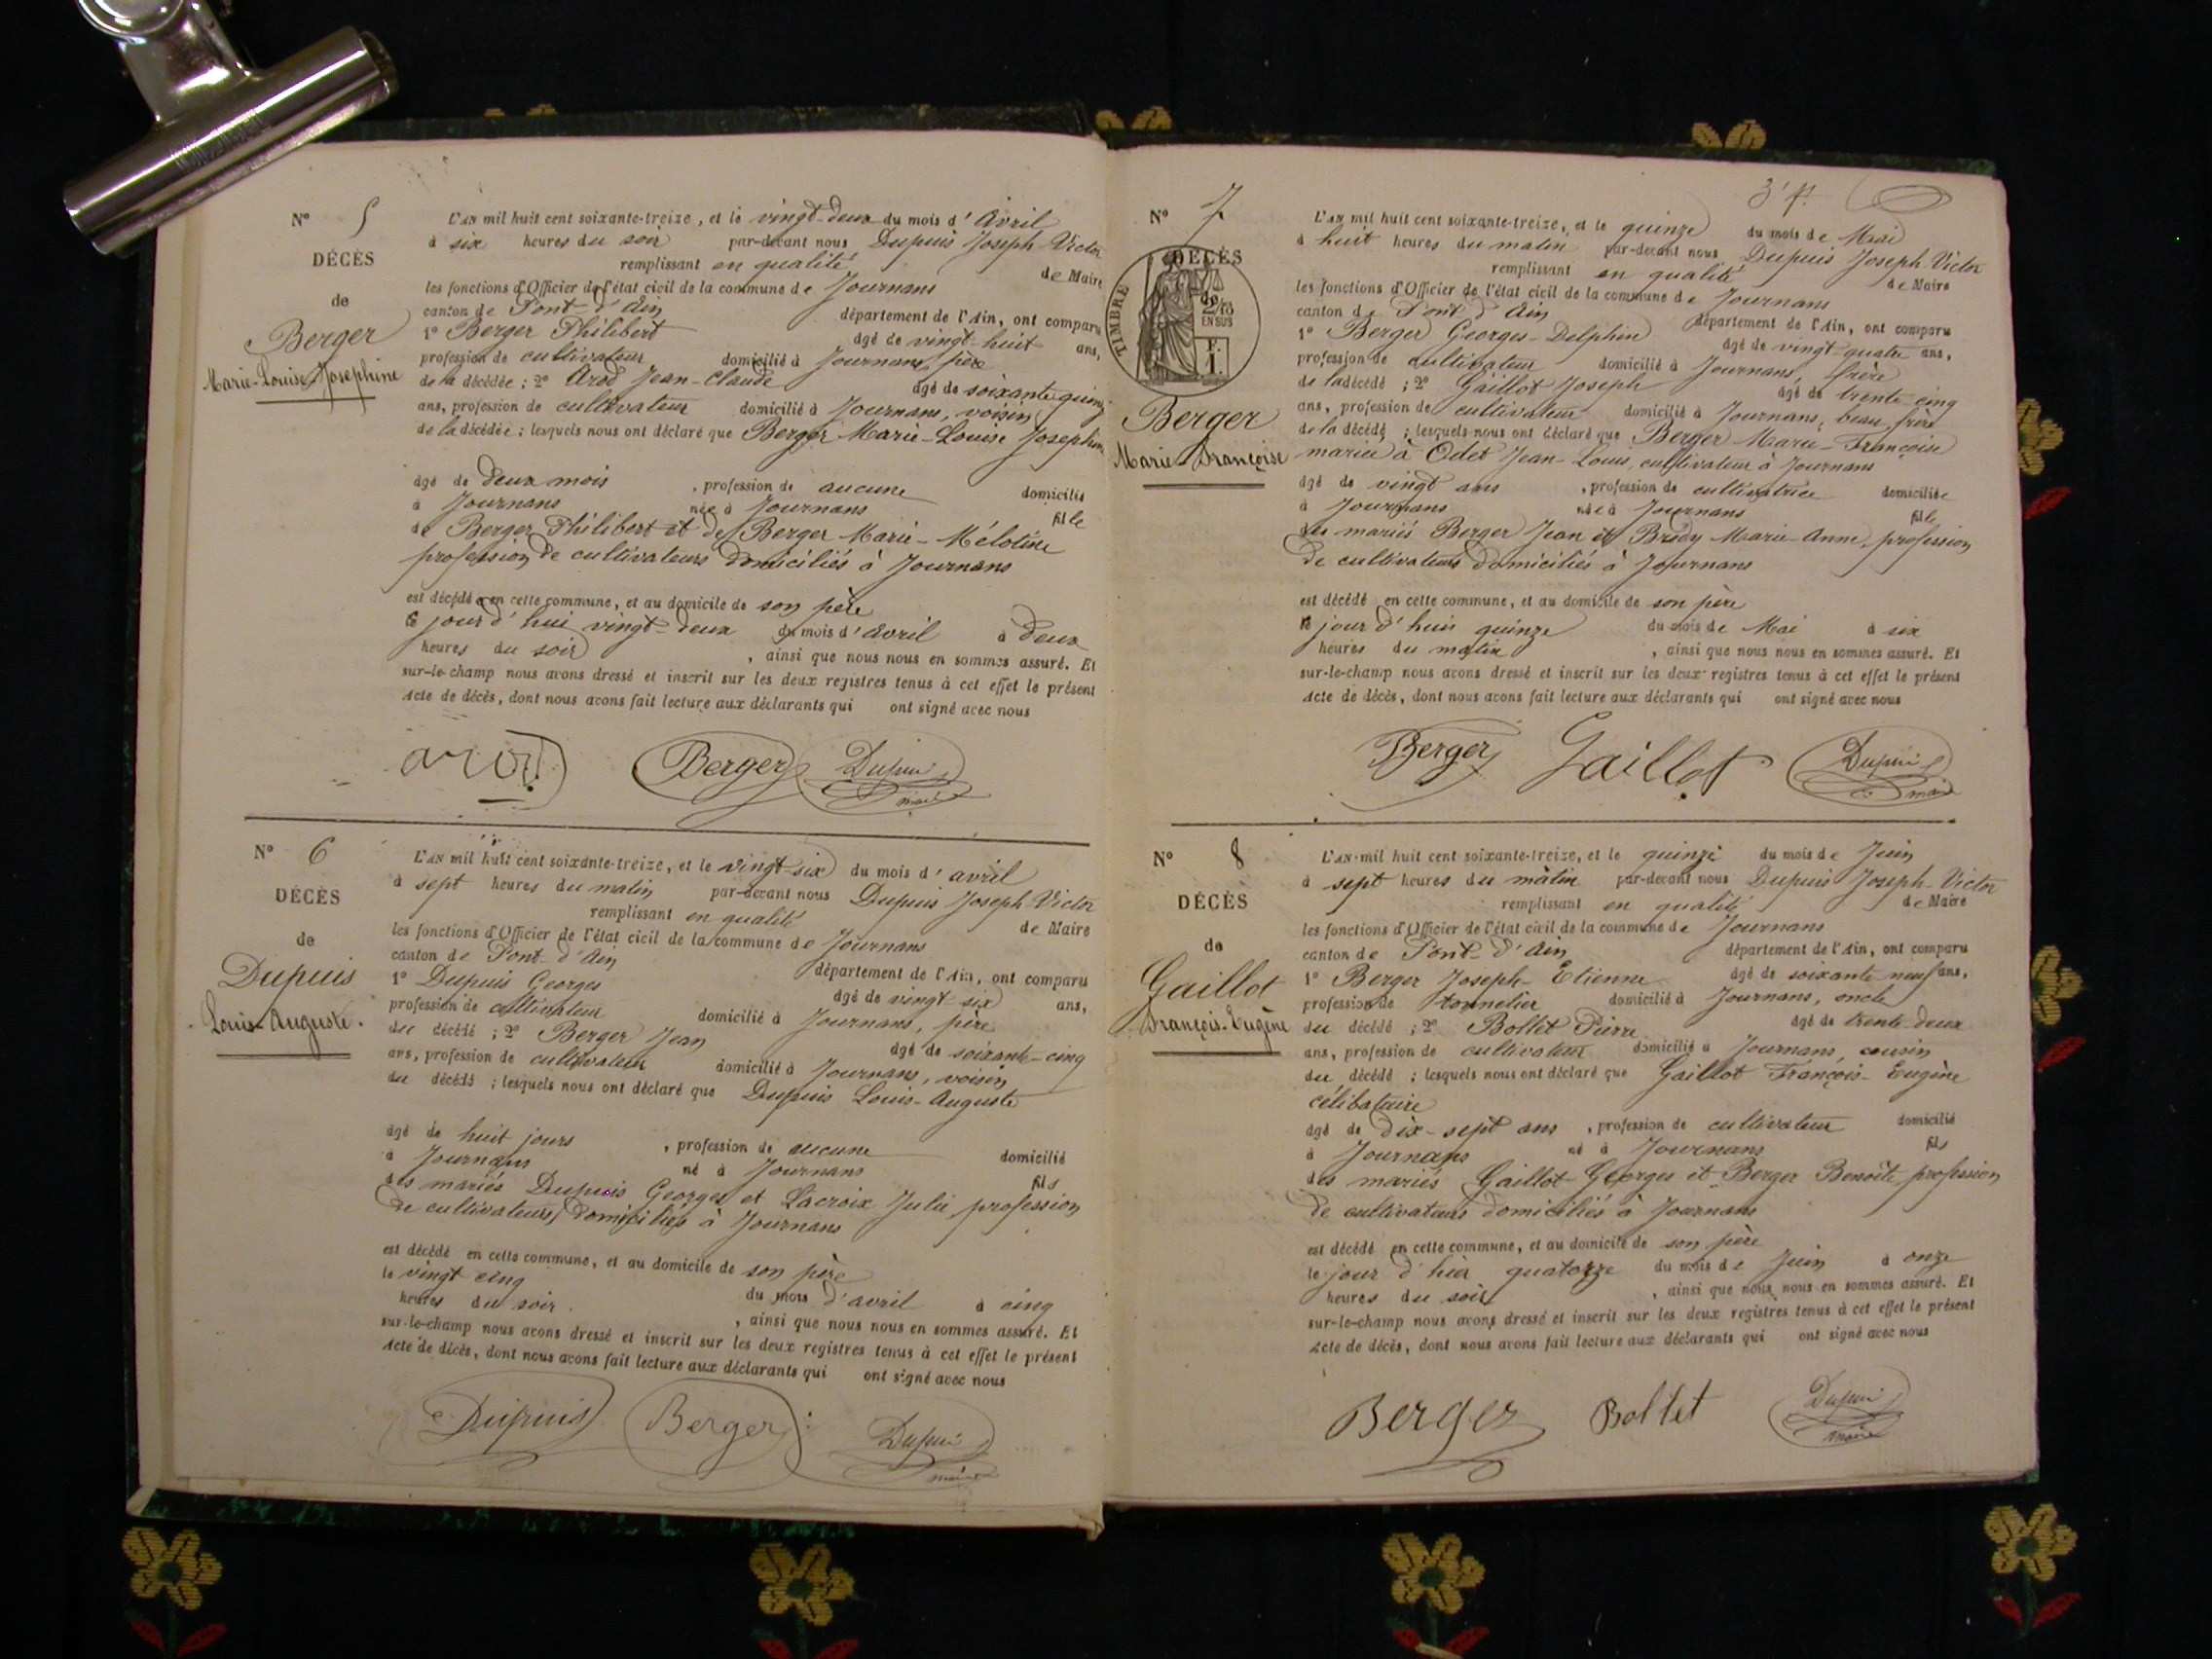 N° 5
DÉCÈS
de
Berger
Marie-Louise-Josephine
L'AN mil huit cent soixante-treize, et le vingt-deux du mois d'Avril
à six heures du soir par-devant nous Dupuis Joseph-Victor
remplissant en qualité de Maire
les fonctions d'Officier de l'état civil de la commune de Journans
canton de Pont-d'Ain département de l'Ain, ont comparu
1° Berger Philibert âgé de vingt-huit ans,
profession de cultivateur domicilié à Journans, père
de la décédée ; 2° Arod Jean-Claude âgé de soixante quinze
ans, profession de cultivateur domicilié à Journans, voisin
de la décédée ; lesquels nous ont déclaré que Berger Marie-Louise Josephine
âgé de deux mois , profession de aucune domicilié
à Journans née à Journans fille
de Berger Philibert et de Berger Marie-Mélotine
profession de cultivateurs domiciliés à Journans
est décédée en cette commune, et au domicile de son père
le jour d'hui vingt-deux du mois d'avril à deux
heures du soir , ainsi que nous nous en sommes assuré. Et
sur-le-champ nous avons dressé et inscrit sur les deux registres tenus à cet effet le présent
acte de décès, dont nous avons fait lecture aux déclarants qui ont signé avec nous
arod Berger Dupuis
maire
N° 6
DÉCÈS
de
Dupuis
Louis-Auguste.
L'AN mil huit cent soixante-treize, et le vingt-six du mois d'avril
à sept heures du matin par-devant nous Dupuis Joseph Victor
remplissant en qualité de Maire
les fonctions d'Officier de l'état civil de la commune de Journans
canton de Pont-d'Ain département de l'Ain, ont comparu
1° Dupuis Georges âgé de vingt-six ans,
profession de cultivateur domicilié à Journans, père
du décédé ; 2° Berger Jean âgé de soixante-cinq
ans, profession de cultivateur domicilié à Journans, voisin
du décédé ; lesquels nous ont déclaré que Dupuis Louis-Auguste
âgé de huit jours , profession de aucune domicilié
à Journans né à Journans fils
des mariés Dupuis Georges et Lacroix Julie, profession
de cultivateurs domiciliés à Journans
est décédé en cette commune, et au domicile de son père
le vingt cinq du mois d'avril à cinq
heures du soir. , ainsi que nous nous en sommes assuré. Et
sur-le-champ nous avons dressé et inscrit sur les deux registres tenus à cet effet le présent
acte de décès, dont nous avons fait lecture aux déclarants qui ont signé avec nous
Dupuis Berger Dupuis
maire
N° 7
DÉCÈS
de
TIMBRE
2/10
EN SUS
F.
1.
Berger
Marie-Françoise
L'AN mil huit cent soixante-treize, et le quinze du mois de Mai
à huit heures du matin par-devant nous Dupuis Joseph-Victor
remplissant en qualité de Maire
les fonctions d'Officier de l'état civil de la commune de Journans
canton de Pont d'Ain département de l'Ain, ont comparu
1° Berger Georges-Delphin âgé de vingt-quatre ans,
profession de cultivateur domicilié à Journans, frère
de la décédé ; 2° Gaillot Joseph âgé de trente-cinq
ans, profession de cultivateur domicilié à Journans, beau-frère
de la décédé ; lesquels nous ont déclaré que Berger Marie-Françoise
mariée à Odet Jean-Louis, cultivateur à Journans
âgé de vingt ans , profession de cultivatrice domiciliée
à Journans née à Journans fille
des mariés Berger Jean et Brédy Marie-Anne, profession
de cultivateurs domiciliés à Journans
est décédé en cette commune, et au domicile de son père
le jour d'huis quinze du mois de Mai à six
heures du matin , ainsi que nous nous en sommes assuré. Et
sur-le-champ nous avons dressé et inscrit sur les deux registres tenus à cet effet le présent
acte de décès, dont nous avons fait lecture aux déclarants qui ont signé avec nous
Berger Gaillot Dupuis
maire
N° 8
DÉCÈS
de
Gaillot
François-Eugène
L'AN mil huit cent soixante-treize, et le quinze du mois de Juin
à sept heures du matin par-devant nous Dupuis Joseph-Victor
remplissant en qualité de Maire
les fonctions d'Officier de l'état civil de la commune de Journans
canton de Pont-d'Ain département de l'Ain, ont comparu
1° Berger Joseph-Etienne âgé de soixante neuf ans,
profession de tonnelier domicilié à Journans, oncle
du décédé ; 2° Bollet Pierre âgé de trente deux
ans, profession de cultivateur domicilié à Journans, cousin
du décédé ; lesquels nous ont déclaré que Gaillot François-Eugène
célibataire
âgé de dix-sept ans , profession de cultivateur domicilié
à Journans né à Journans fils
des mariés Gaillot Georges et Berger Benoîte, profession
de cultivateurs domiciliés à Journans
est décédé en cette commune, et au domicile de son père
le jour d'hier quatorze du mois de Juin à onze
heures du soir , ainsi que nous nous en sommes assuré. Et
sur-le-champ nous avons dressé et inscrit sur les deux registres tenus à cet effet le présent
acte de décès, dont nous avons fait lecture aux déclarants qui ont signé avec nous
Berger Bollet Dupuis
maire